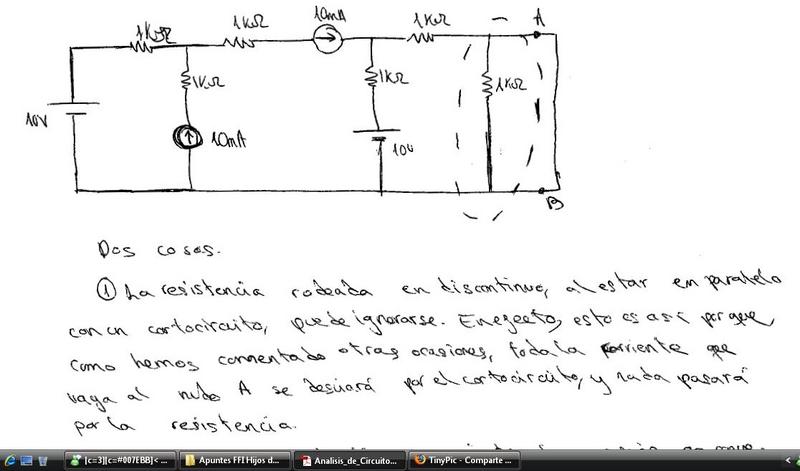 1KΩ 1KΩ 10mA 1KΩ A
1KΩ 1KΩ 1KΩ
10V 10mA 10V
B
Dos cosas.
① La resistencia rodeada en discontinuo, al estar en paralelo
con un cortocircuito, puede ignorarse. En efecto, esto es así porque,
como hemos comentado otras ocasiones, toda la corriente que
vaya al nudo A se desviará por el cortocircuito, y nada pasará
por la resistencia.
[c=3][c=#007EBB]< ... Apuntes FFI Hijos d... Analisis_de_Circuito... TinyPic - Comparte ...